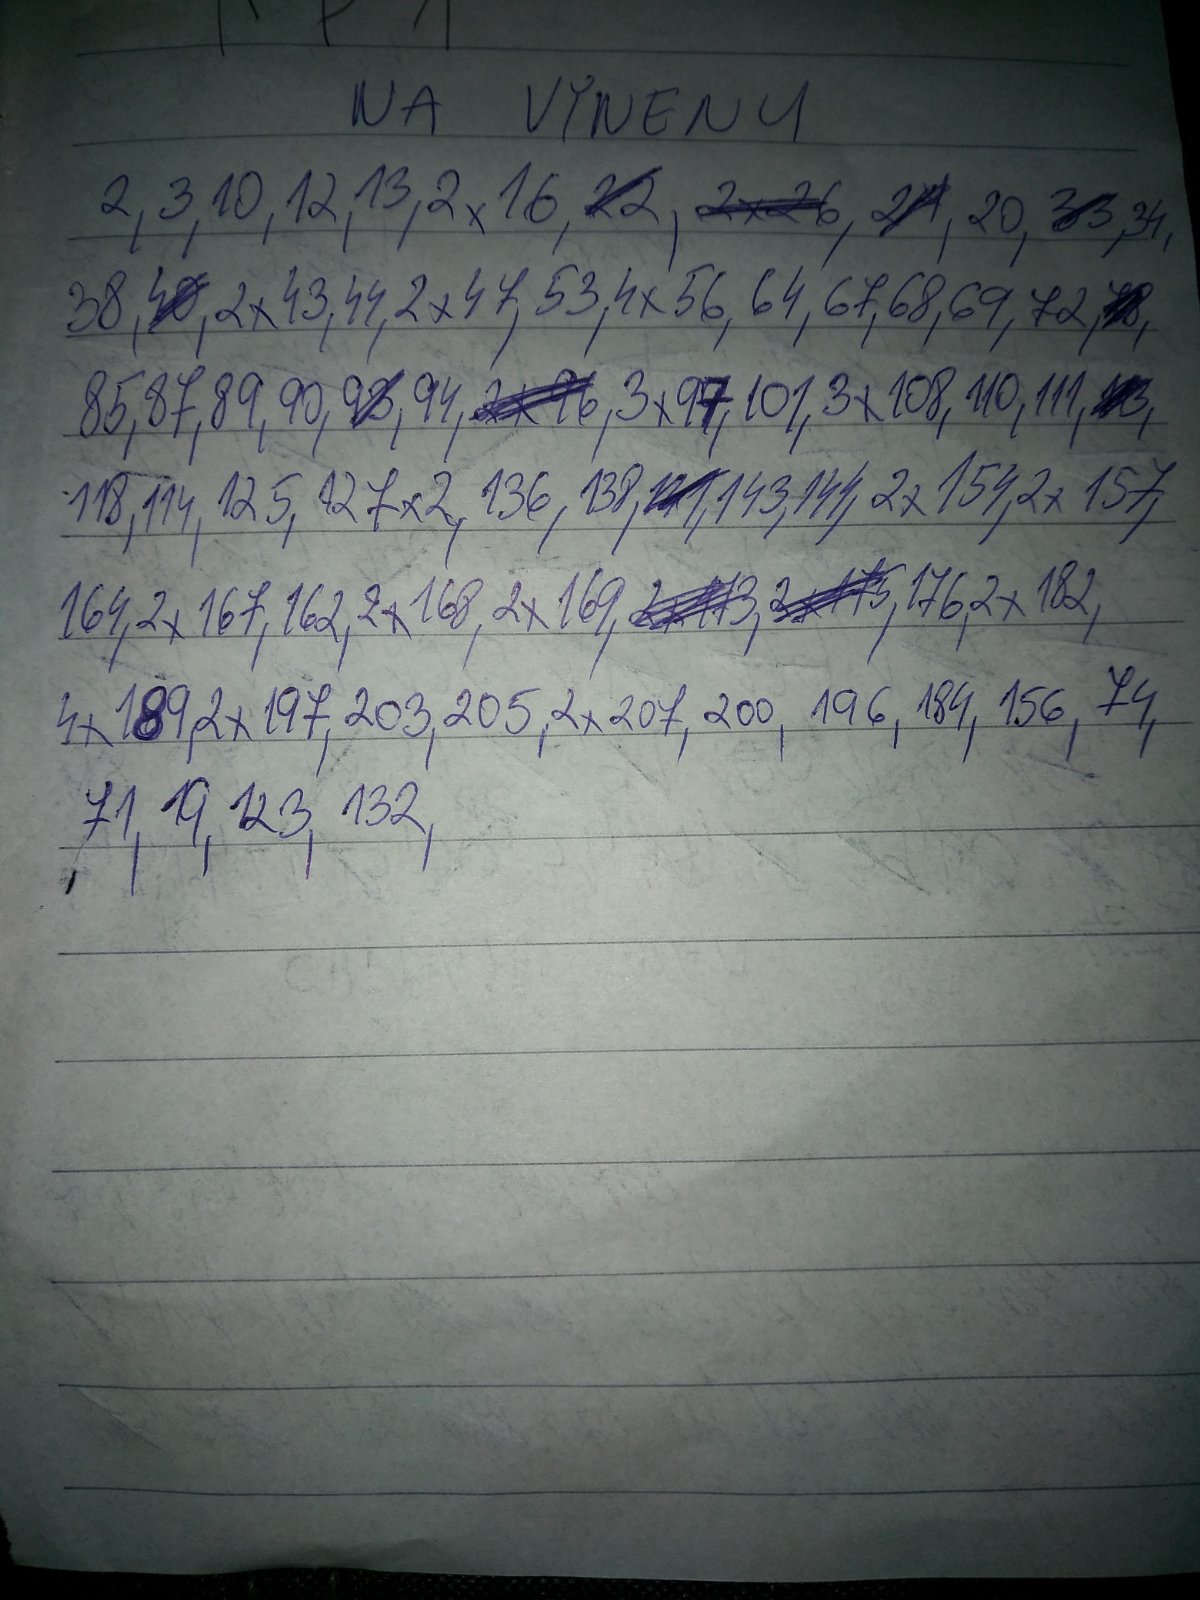 NA VÝMENU
2, 3, 10, 12, 13, 2x16, 22, 2x26, 24, 20, 33, 34,
38, 40, 2x43, 44, 2x47, 53, 4x56, 64, 67, 68, 69, 72, 78,
85, 87, 89, 90, 93, 94, 2x96, 3x97, 101, 3x108, 110, 111, 113,
118, 114, 125, 127x2, 136, 138, 141, 143, 144, 2x154, 2x157,
164, 2x167, 162, 2x168, 2x169, 2x173, 2x175, 176, 2x182,
4x189, 2x197, 203, 205, 2x207, 200, 196, 184, 156, 74,
71, 19, 123, 132,